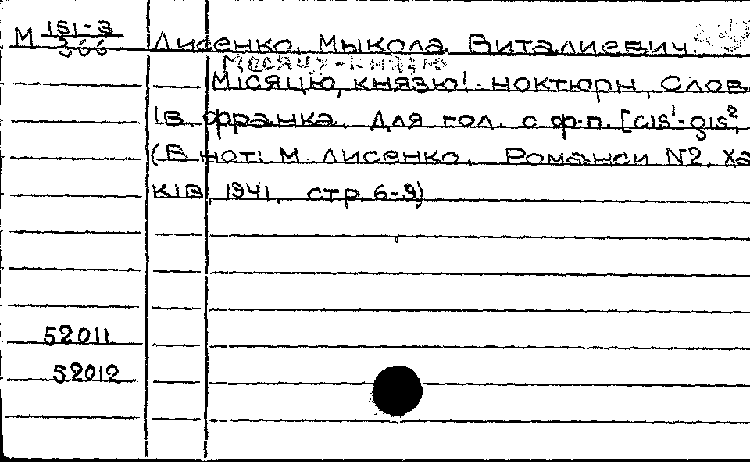 М 151-3
366
Лисенко, Мыкола Виталиевич.
Місяцю-князю
Місяцю, князю! - ноктюрн, Слов.
Ів франка. Для гол. с ф-п. [cis¹-gis²,
(В нот: М. Лисенко. Романси №2. Ха
ків, 1941. стр. 6-9)
52011
52012